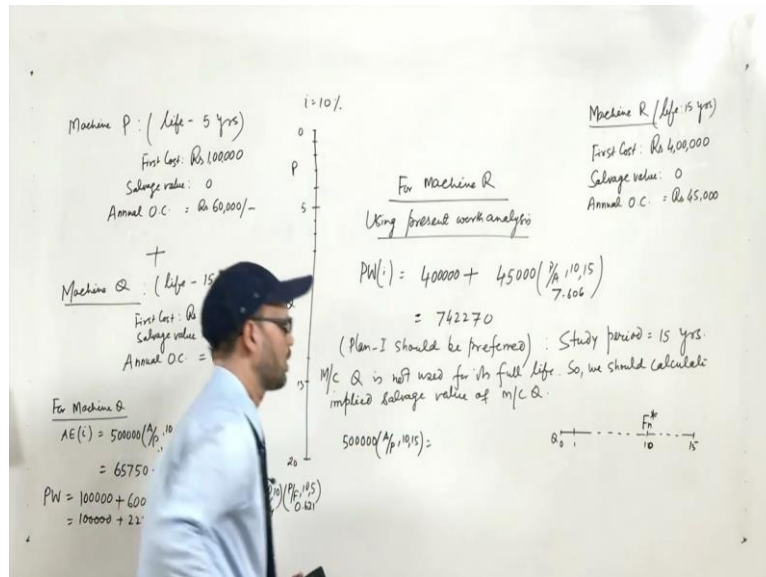 i=10%
Machine P : ( life - 5 yrs)
First Cost : Rs 100000
Salvage value : 0
Annual O.C. = Rs 60,000/-
+
Machine Q : (life - 15
First Cost : Rs
Salvage value
Annual O.C. =
For Machine Q
AE(i) = 500000(A/P, 10
= 65750
PW = 100000 + 600
= 100000 + 22
(P/F, 10, 5)
0.621
0
P
5
15
20
For Machine R
Using present worth analysis
PW(i) = 400000 + 45000(P/A, 10, 15)
7.606
= 742270
(Plan-I should be preferred) : Study period = 15 yrs.
M/C Q is not used for its full life. So, we should calculate
implied salvage value of M/C Q.
500000(A/P, 10, 15) =
Fn*
Q 0 1 10 15
Machine R (life: 15 yrs)
First Cost : Rs 4,00,000
Salvage value : 0
Annual O.C. = Rs 45,000